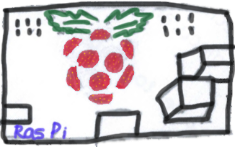 Ras Pi